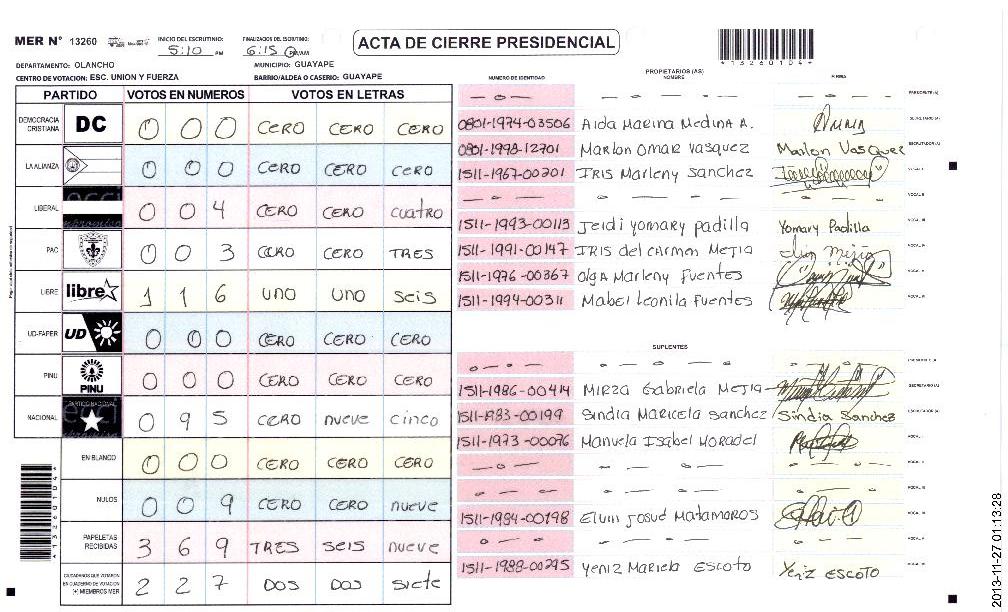 MER N° 13260 INICIO DEL ESCRUTINIO: 5:10 PM FINALIZACION DEL ESCRUTINIO: 6:15 PM/AM
ACTA DE CIERRE PRESIDENCIAL
*13260104*
DEPARTAMENTO: OLANCHO MUNICIPIO: GUAYAPE
CENTRO DE VOTACION: ESC. UNION Y FUERZA BARRIO/ALDEA O CASERIO: GUAYAPE
PARTIDO VOTOS EN NUMEROS VOTOS EN LETRAS
DEMOCRACIA CRISTIANA DC 0 0 0 CERO CERO CERO
LA ALIANZA 0 0 0 CERO CERO CERO
LIBERAL 0 0 4 CERO CERO cuatro
PAC 0 0 3 CERO CERO TRES
LIBRE libre 1 1 6 UNO UNO SEIS
UD-FAPER UD 0 0 0 CERO CERO CERO
PINU PINU 0 0 0 CERO CERO CERO
NACIONAL PARTIDO NACIONAL 0 9 5 CERO nueve cinco
EN BLANCO 0 0 0 CERO CERO CERO
NULOS 0 0 9 CERO CERO nueve
PAPELETAS RECIBIDAS 3 6 9 TRES SEIS nueve
CIUDADANOS QUE VOTARON
EN CUADERNO DE VOTACION
(+) MIEMBROS MER 2 2 7 DOS DOS Siete
PROPIETARIOS (AS)
NUMERO DE IDENTIDAD NOMBRE FIRMA
PRESIDENTE (A)
0801-1974-03506 Aida Marina Medina A. SECRETARIO (A)
0801-1998-12701 Marlon Omar Vasquez Marlon Vasquez ESCRUTADOR (A)
1511-1967-00201 IRIS Marleny Sanchez VOCAL I
VOCAL II
1511-1993-00113 Jeidi yomary padilla Yomary Padilla VOCAL III
1511-1991-00147 IRIS del carmen Mejia VOCAL IV
1511-1976-00367 Olga Marleny Fuentes VOCAL V
1511-1994-00311 Mabel Leonila Fuentes VOCAL VI
SUPLENTES
PRESIDENTE (A)
1511-1986-00414 MIRZA Gabriela Mejia SECRETARIO (A)
1511-1983-00199 Sindia Maricela Sanchez Sindia Sanchez ESCRUTADOR (A)
1511-1973-00076 Manuela Isabel Moradel VOCAL I
VOCAL II
VOCAL III
1511-1984-00198 Elvin Josué Matamoros VOCAL IV
VOCAL V
1511-1988-00295 Yeniz Mariela Escoto Yeniz ESCOTO VOCAL VI
*13260104*
2013-11-27 01:13:28